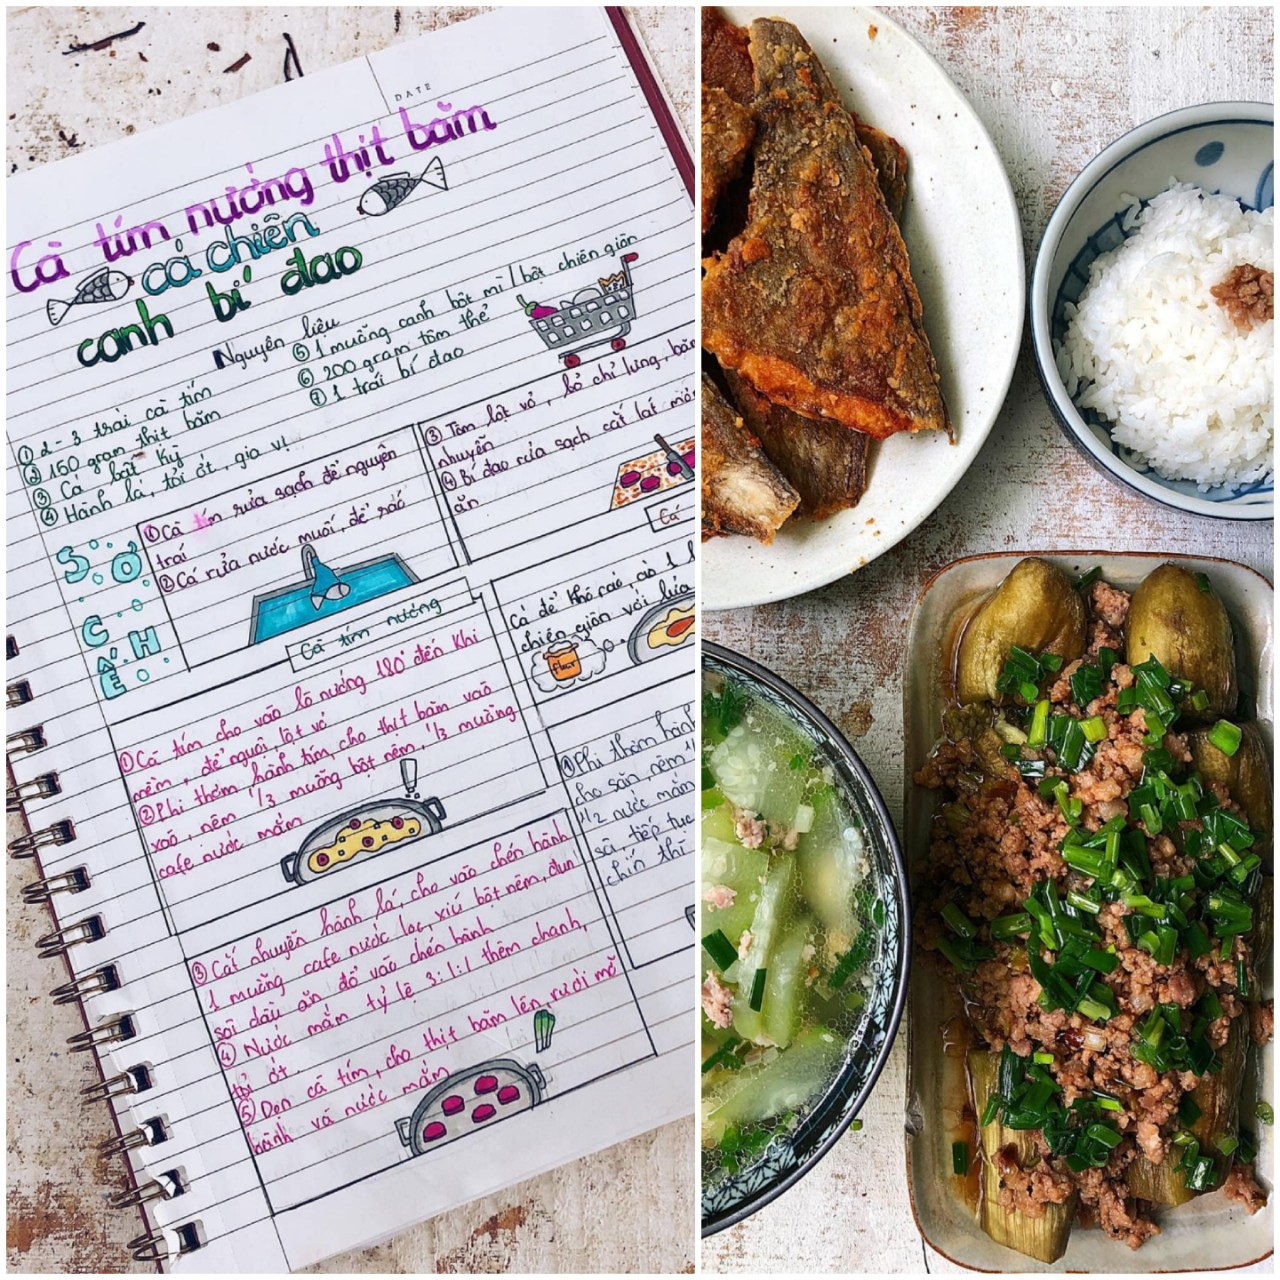 DATE
Cà tím nướng thịt băm
cá chiên
canh bí đao
Nguyên liệu
① 2 - 3 trái cà tím
② 150 gram thịt băm
③ Cá bất kỳ
④ Hành lá, tỏi ớt, gia vị
⑤ 1 muỗng canh bột mì / bột chiên giòn
⑥ 200 gram tôm thẻ
⑦ 1 trái bí đao
SƠ
CHẾ
① Cà tím rửa sạch để nguyên
trái
② Cá rửa nước muối, để ráo
③ Tôm lột vỏ, bỏ chỉ lưng, băm
nhuyễn
④ Bí đao rửa sạch cắt lát
ăn
Cà tím nướng
① Cà tím cho vào lò nướng 180° đến khi
mềm, để nguội, lột vỏ
② Phi thơm hành tím, cho thịt băm vào
xào, nêm 1/3 muỗng bột nêm, 1/3 muỗng
cafe nước mắm
③ Cắt nhuyễn hành lá, cho vào chén hành
1 muỗng cafe nước lọc, xíu bột nêm, đun
sôi dầu ăn đổ vào chén hành
④ Nước mắm tỷ lệ 3:1:1 thêm chanh,
tỏi ớt.
⑤ Dọn cà tím, cho thịt băm lên, rưới mỡ
hành và nước mắm
Cá
Cá để khô ráo, áo 1 l
chiên giòn với lửa
flour
① Phi thơm hành
cho sẵn, nêm
1/2 nước mắm
sôi, tiếp tục
chín thì